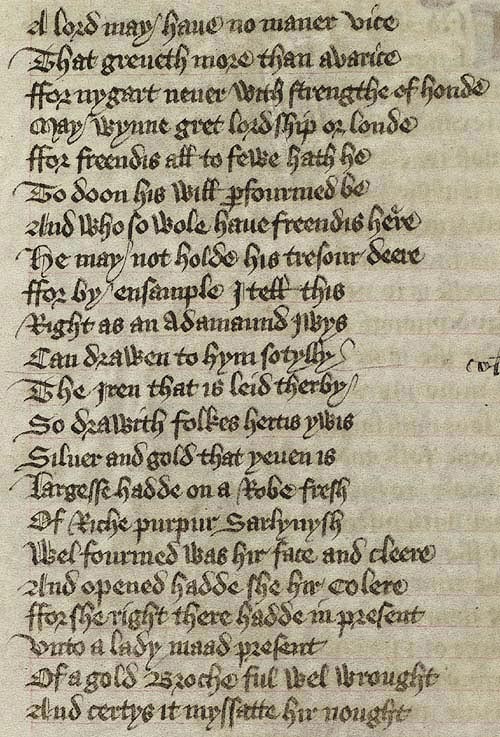 A lord may haue no maner vice
That greueth more than auarice
ffor nygart neuer with strengthe of honde
May wynne gret lordship or londe
ffor freendis all to fewe hath he
To doon his will ꝑfourmed be
And who so wole haue freendis heere
He may not holde his tresour deere
ffor by ensample I tell this
Right as an Adamaund Iwys
Can drawen to hym sotylly
The Iren that is leid therby
So drawith folkes hertis ywis
Siluer and gold that yeuen is
Largesse hadde on a Robe fresh
Of Riche purpur Sarlynysh
Wel fourmed was hir face and cleere
And opened hadde she hir colere
ffor she right there hadde in present
Vnto a lady maad present
Of a gold Broche ful wel wrought
And certys it myssatte hir nought